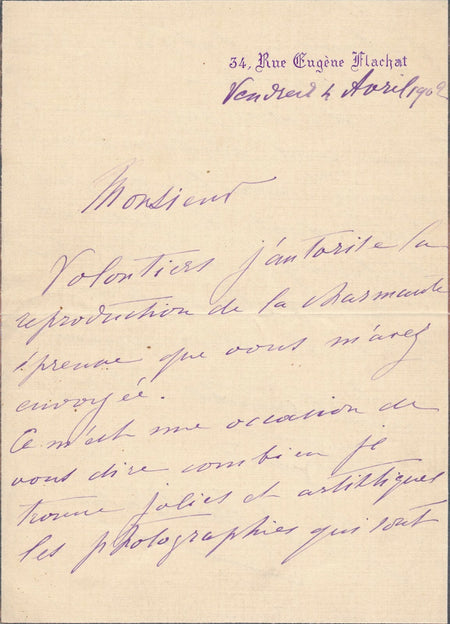 34, Rue Eugène Flachat
Vendredi 4 Avril 1902
Monsieur
Volontiers j'autorise la
reproduction de la charmante
épreuve que vous m'avez
envoyée.
Ce m'est une occasion de
vous dire combien je
trouve jolies et artistiques
les photographies qui sont